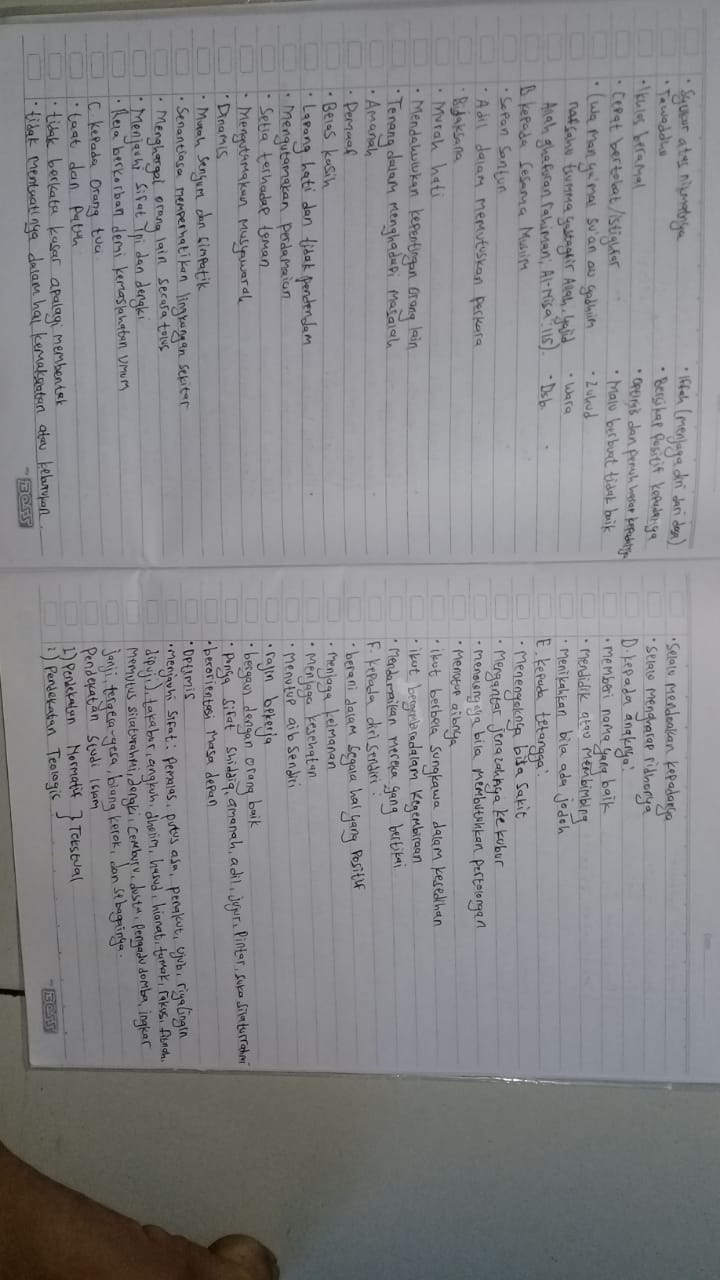 • Syukur atas nikmatnya
• Tawaddhu
• Ikhlas beramal
• Cepat bertobat/istighfar
• (Wa man ya'mal su'an au yadhlim
nafsahu tsumma yastaghfir Allah, yajid
Allah ghafuran rahiman; Al-Nisa': 115).
• Iffah (menjaga diri dari dosa)
• Bersikap positif kepadanya
• optimis dan penuh harap kepadanya
• Malu berbuat tidak baik
• Zuhud
• Wara
• Dsb.
B kepada sesama Muslim
• Sopan santun
• Adil dalam memutuskan perkara
• Bijaksana
• Murah hati
• Mendahulukan kepentingan orang lain
• Tenang dalam menghadapi masalah
• Amanah
• Pemaaf
• Belas kasih
• Lapang hati dan tidak pendendam
• Mengutamakan perdamaian
• Setia terhadap teman
• Mengutamakan musyawarah
• Dinamis
• Murah senyum dan simpatik
• Senantiasa memperhatikan lingkungan sekitar
• Menghargai orang lain secara tulus
• Menjauhi sifat iri dan dengki
• Rela berkorban demi kemaslahatan umum
C. kepada orang tua
• taat dan patuh
• tidak berkata kasar apalagi membentak
• tidak mentaatinya dalam hal kemaksiatan atau keburukan.
BOSS
• Selalu mendoakan kepadanya
• Selalu mengharap ridhonya
D. kepada anaknya:
• memberi nama yang baik
• mendidik atau membimbing
• Menikahkan bila ada jodoh
E. kepada tetangga:
• Menengoknya bila sakit
• Mengantar jenazahnya ke kubur
• menolongnya bila membutuhkan pertolongan
• Menutup aibnya
• Ikut berbela sungkawa dalam kesedihan
• ikut bergembira dalam kegembiraan
• Mendamaikan mereka yang bertikai
F. kepada diri sendiri:
• berani dalam segala hal yang positif
• menjaga keimanan
• Menjaga kesehatan
• menutup aib sendiri
• rajin bekerja
• bergaul dengan orang baik
• Punya sifat shiddiq, amanah, adil, jujur, pintar, suka silaturrahmi
• berorientasi masa depan
• Optimis
• menjauhi sifat: pemalas, putus asa, penakut, ujub, riya (ingin
dipuji), takabur, angkuh, dholim, hasud, hianat, tamak, rakus, fitnah,
memutus silaturahmi, dengki, cemburu, dusta, pengadu domba, ingkar
janji, tergesa-gesa, biang kerok, dan sebagainya.
Pendekatan Studi Islam
1) Pendekatan Normatif } Tekstual
2) Pendekatan Teologis
BOSS